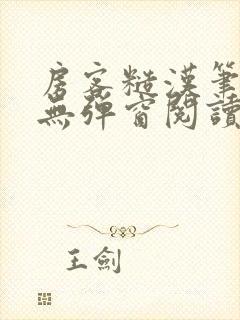 房客糙漢筆
無彈窗閱讀
王劍